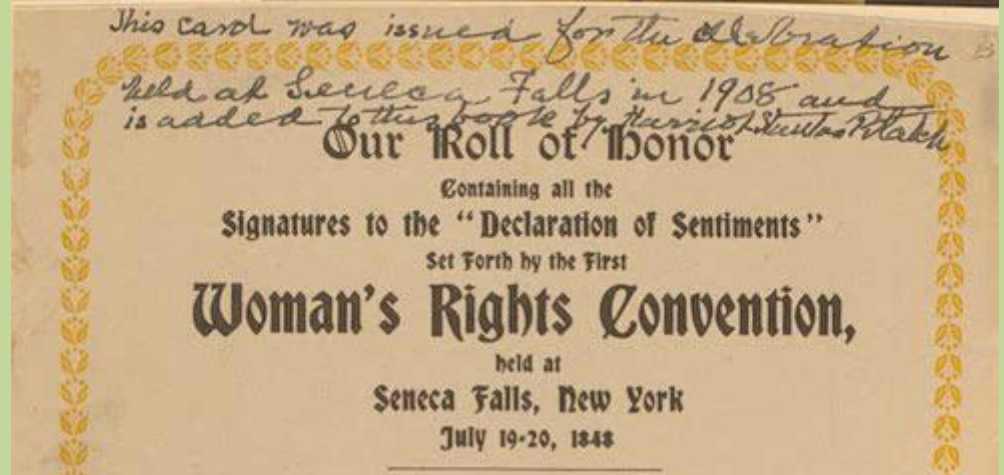 This card was issued for the celebration
held at Seneca Falls in 1908 and
is added to this book by Harriot Stanton Blatch
Our Roll of Honor
Containing all the
Signatures to the "Declaration of Sentiments"
Set Forth by the First
Woman's Rights Convention,
held at
Seneca Falls, New York
July 19-20, 1848